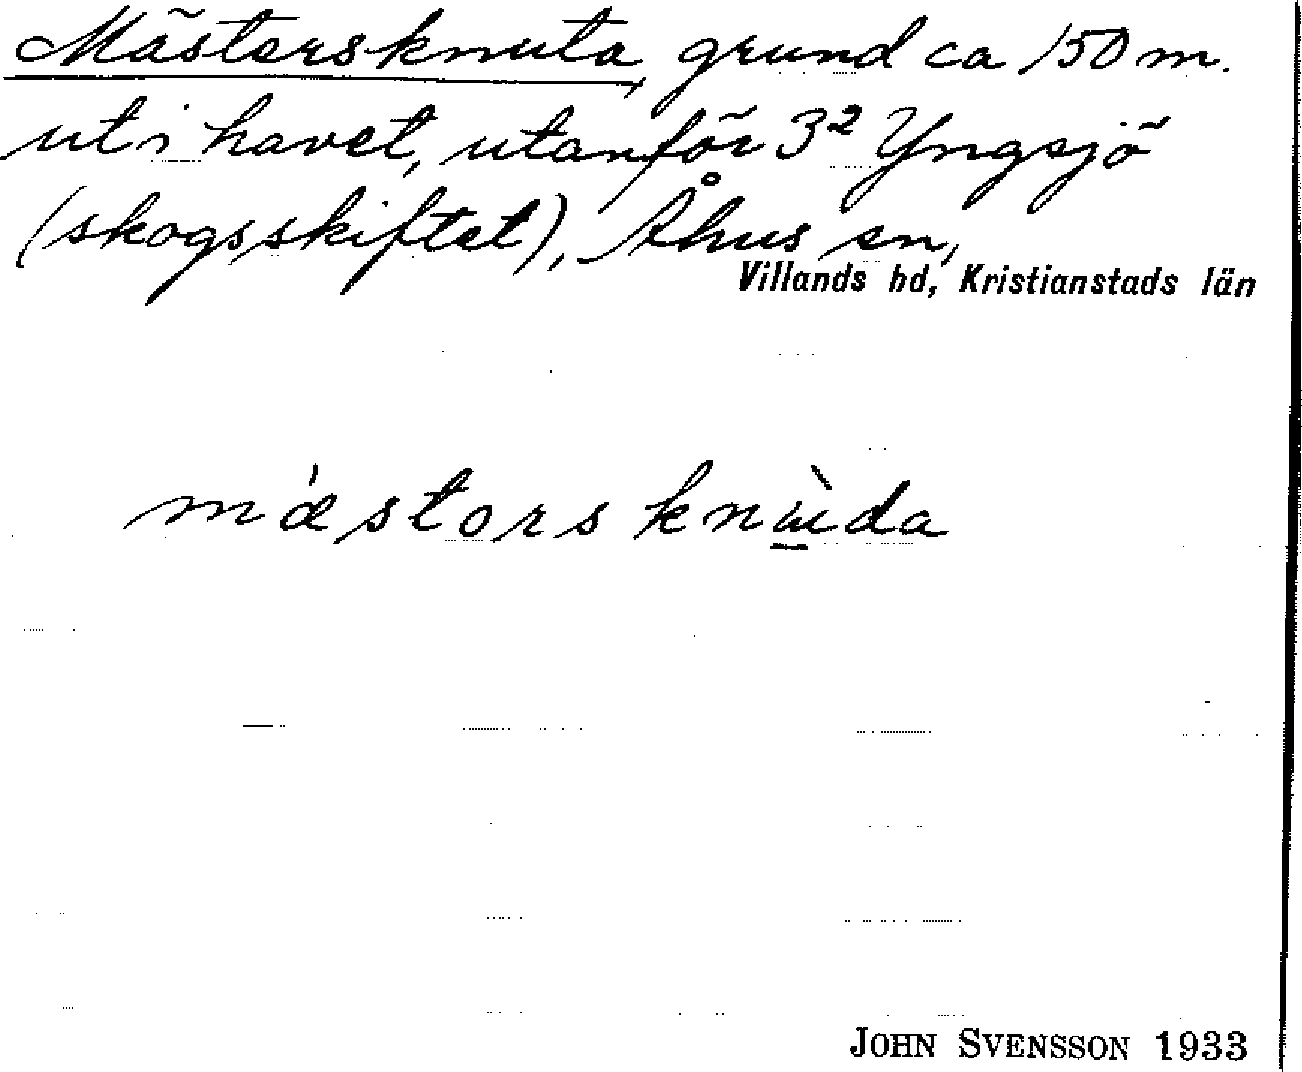 Mästersknuta, grund ca 150 m.
ut i havet, utanför 3² Yngsjö
(skogsskiftet), Åhus sn,
Villands hd, Kristianstads län
mǽstors knù̠da
JOHN SVENSSON 1933